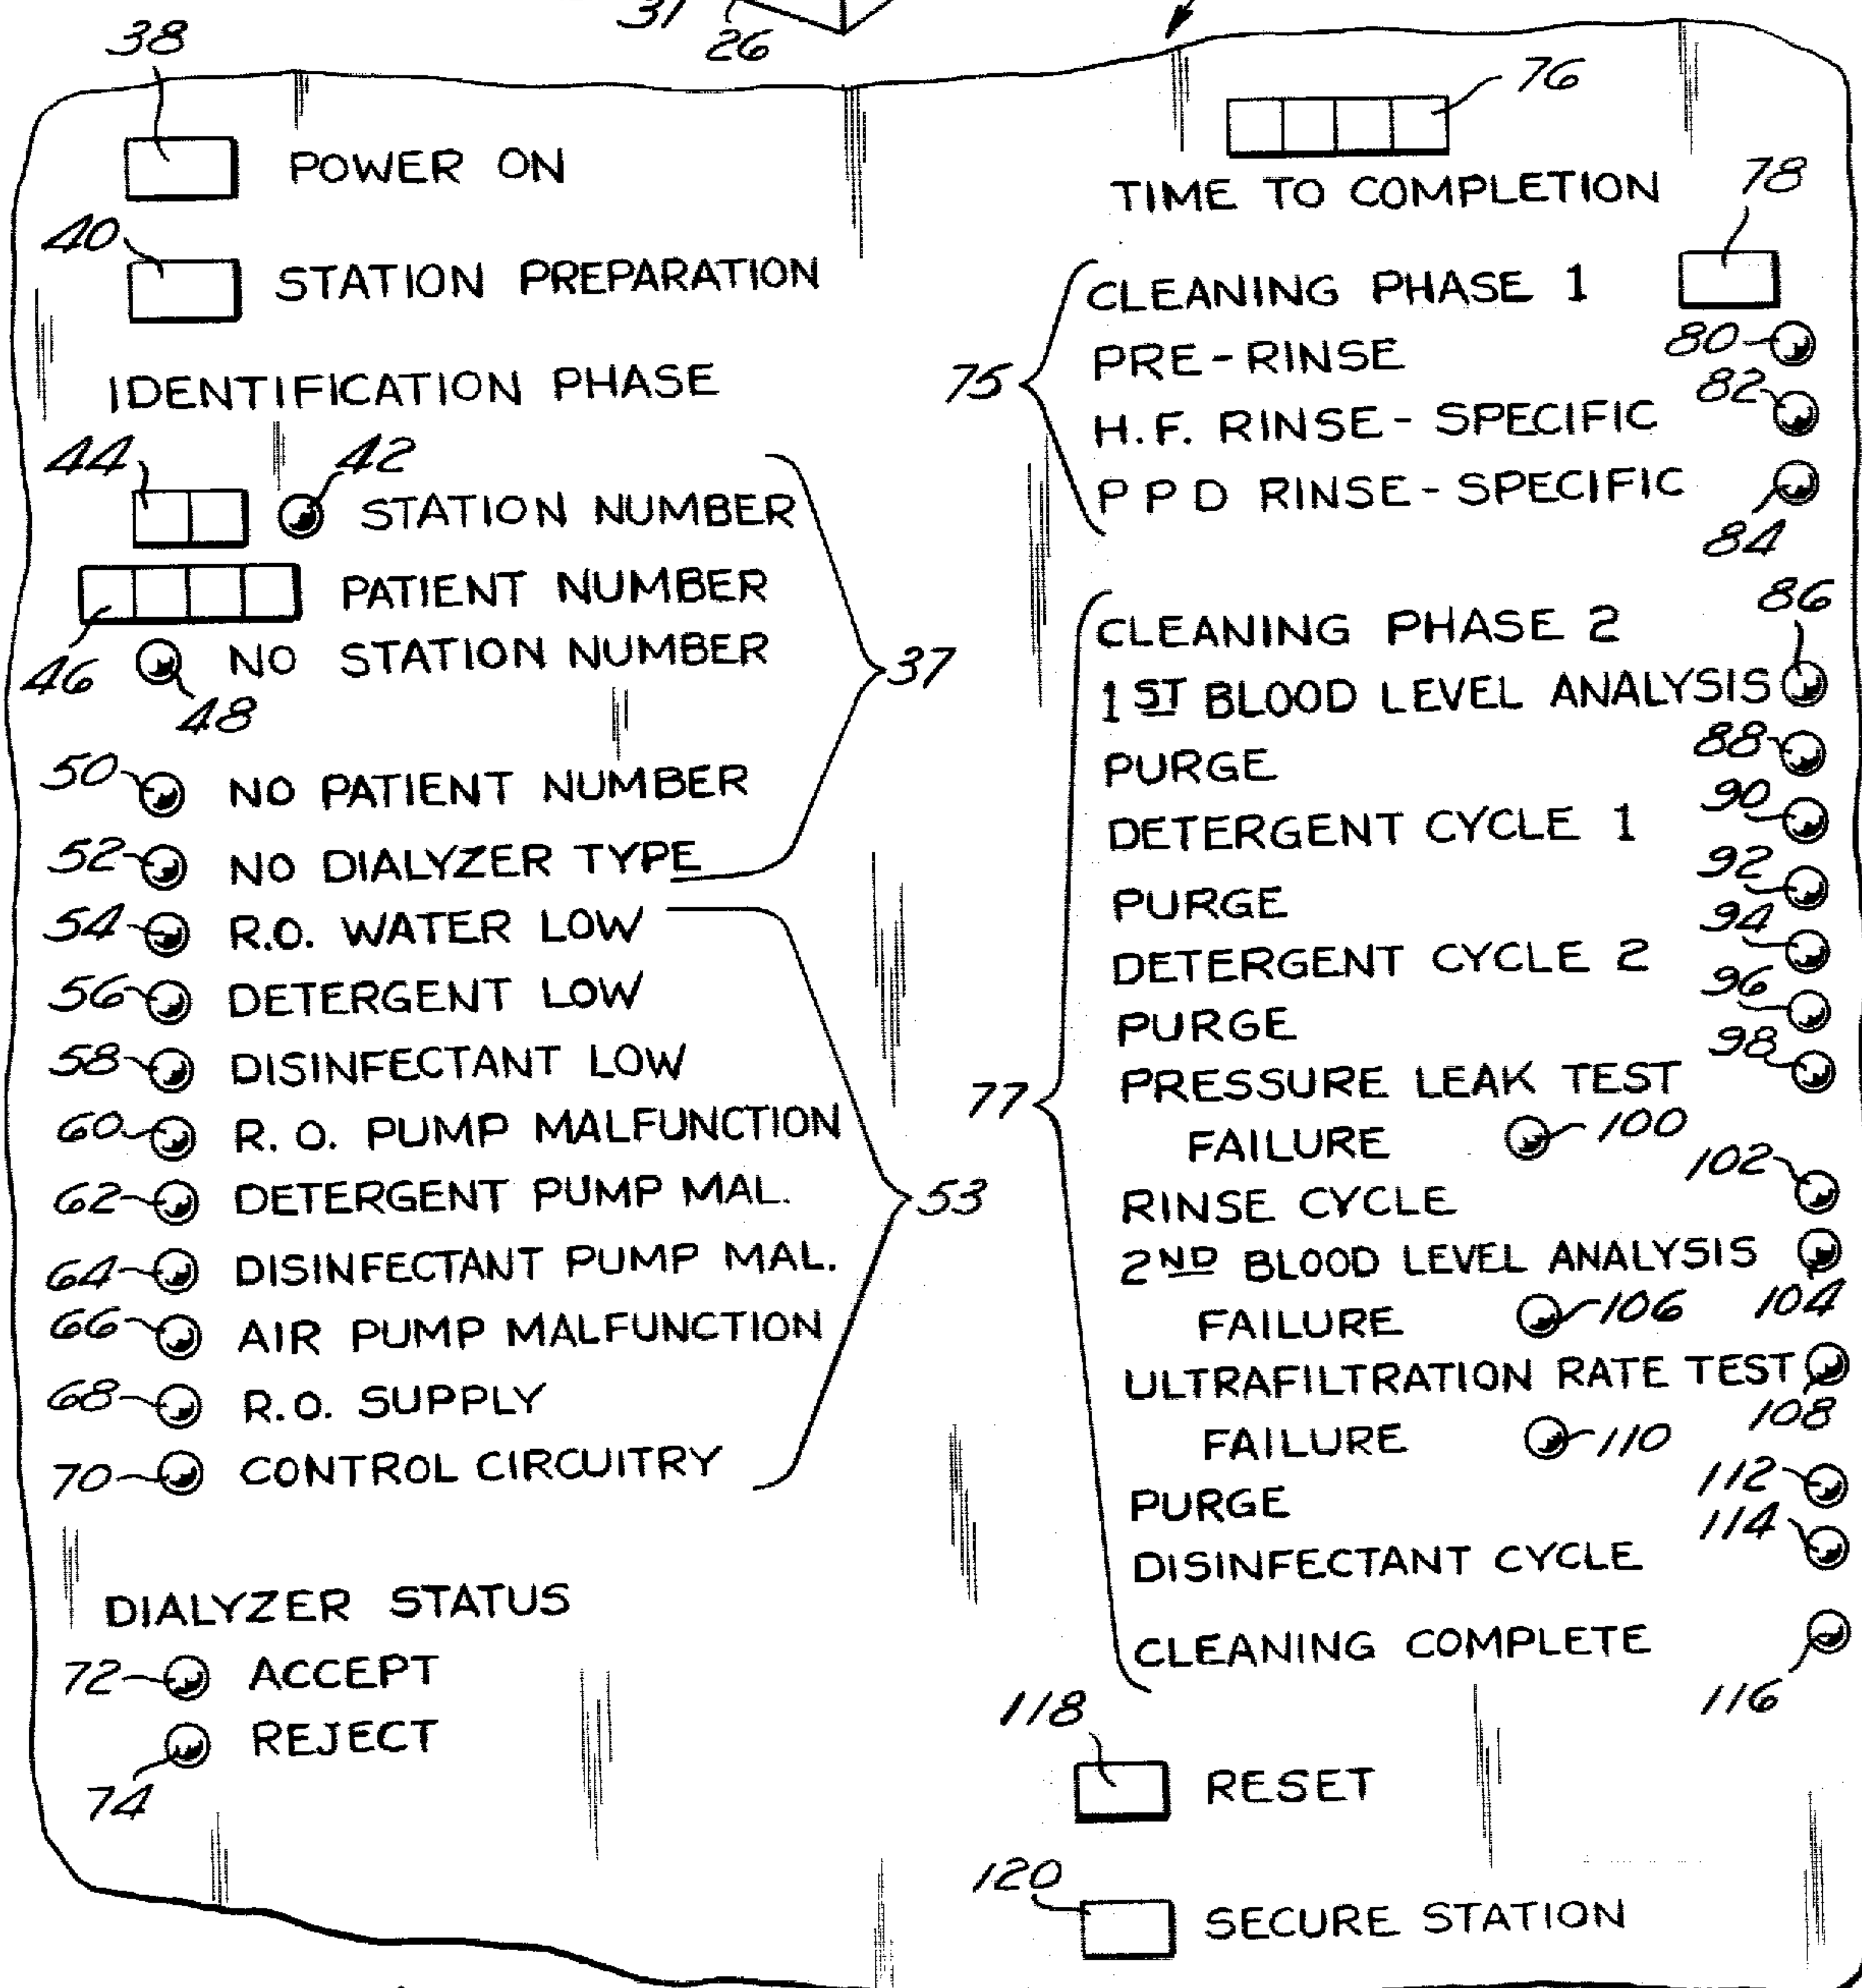 31
26
38
POWER ON
40
STATION PREPARATION
IDENTIFICATION PHASE
44
42
STATION NUMBER
PATIENT NUMBER
46
NO STATION NUMBER
48
37
50 NO PATIENT NUMBER
52 NO DIALYZER TYPE
54 R.O. WATER LOW
56 DETERGENT LOW
58 DISINFECTANT LOW
60 R. O. PUMP MALFUNCTION
62 DETERGENT PUMP MAL.
53
64 DISINFECTANT PUMP MAL.
66 AIR PUMP MALFUNCTION
68 R.O. SUPPLY
70 CONTROL CIRCUITRY
DIALYZER STATUS
72 ACCEPT
REJECT
74
76
TIME TO COMPLETION
78
CLEANING PHASE 1
75
PRE-RINSE 80
H.F. RINSE-SPECIFIC 82
PPD RINSE-SPECIFIC
84
CLEANING PHASE 2
86
1ST BLOOD LEVEL ANALYSIS
PURGE 88
DETERGENT CYCLE 1 90
PURGE 92
DETERGENT CYCLE 2 94
PURGE 96
PRESSURE LEAK TEST 98
77
FAILURE 100
RINSE CYCLE 102
2ND BLOOD LEVEL ANALYSIS
104
FAILURE 106
ULTRAFILTRATION RATE TEST
108
FAILURE 110
PURGE 112
DISINFECTANT CYCLE 114
CLEANING COMPLETE
116
118
RESET
120
SECURE STATION